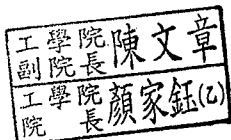 工學院
副院長陳文章
工學院
院長顏家鈺(乙)